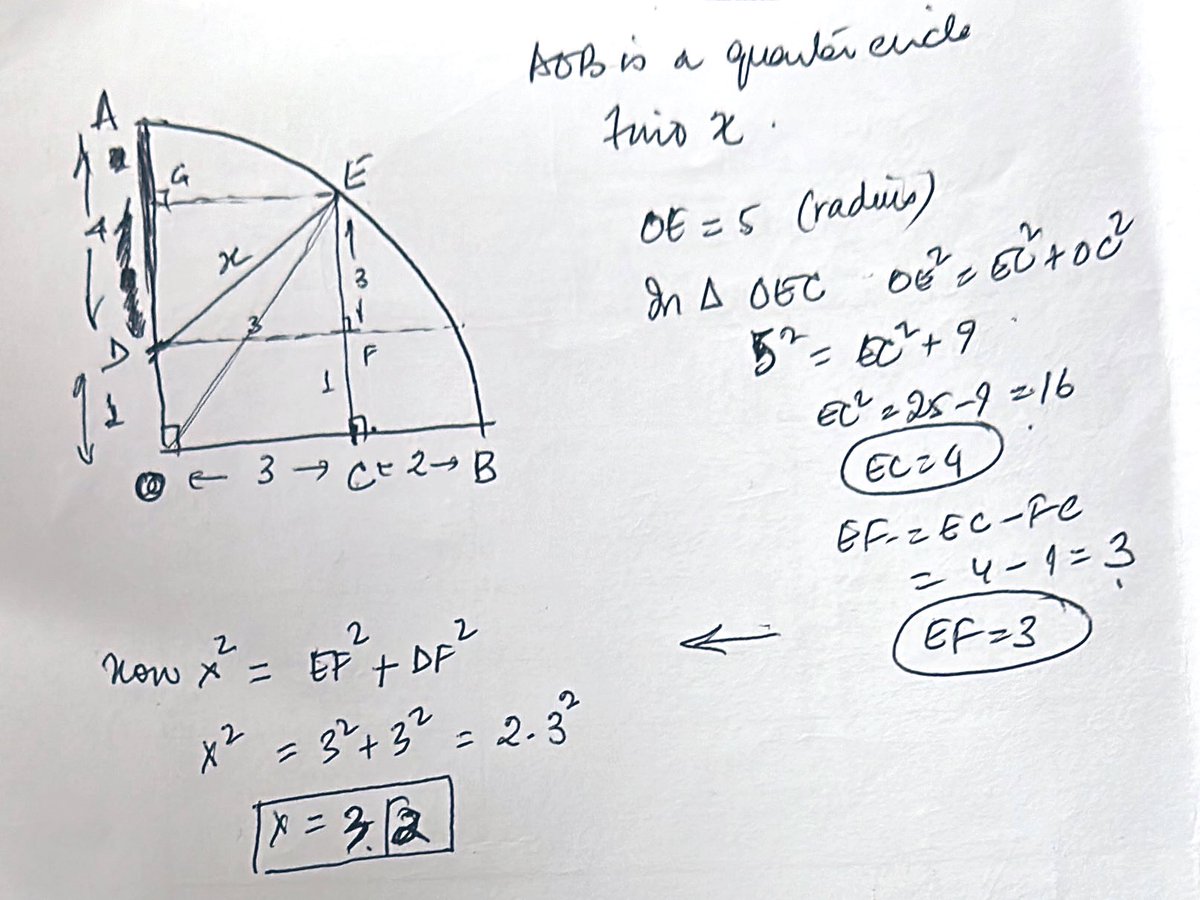 AOB is a quarter circle
Find x.
A
G
E
4
x
3
3
D
F
1
1
O ← 3 → C ← 2 → B
OE = 5 (radius)
In Δ OEC OE² = EC² + OC²
5² = EC² + 9
EC² = 25 - 9 = 16
EC = 4
EF = EC - FC
= 4 - 1 = 3
EF = 3
←
Now x² = EF² + DF²
x² = 3² + 3² = 2.3²
x = 3√2